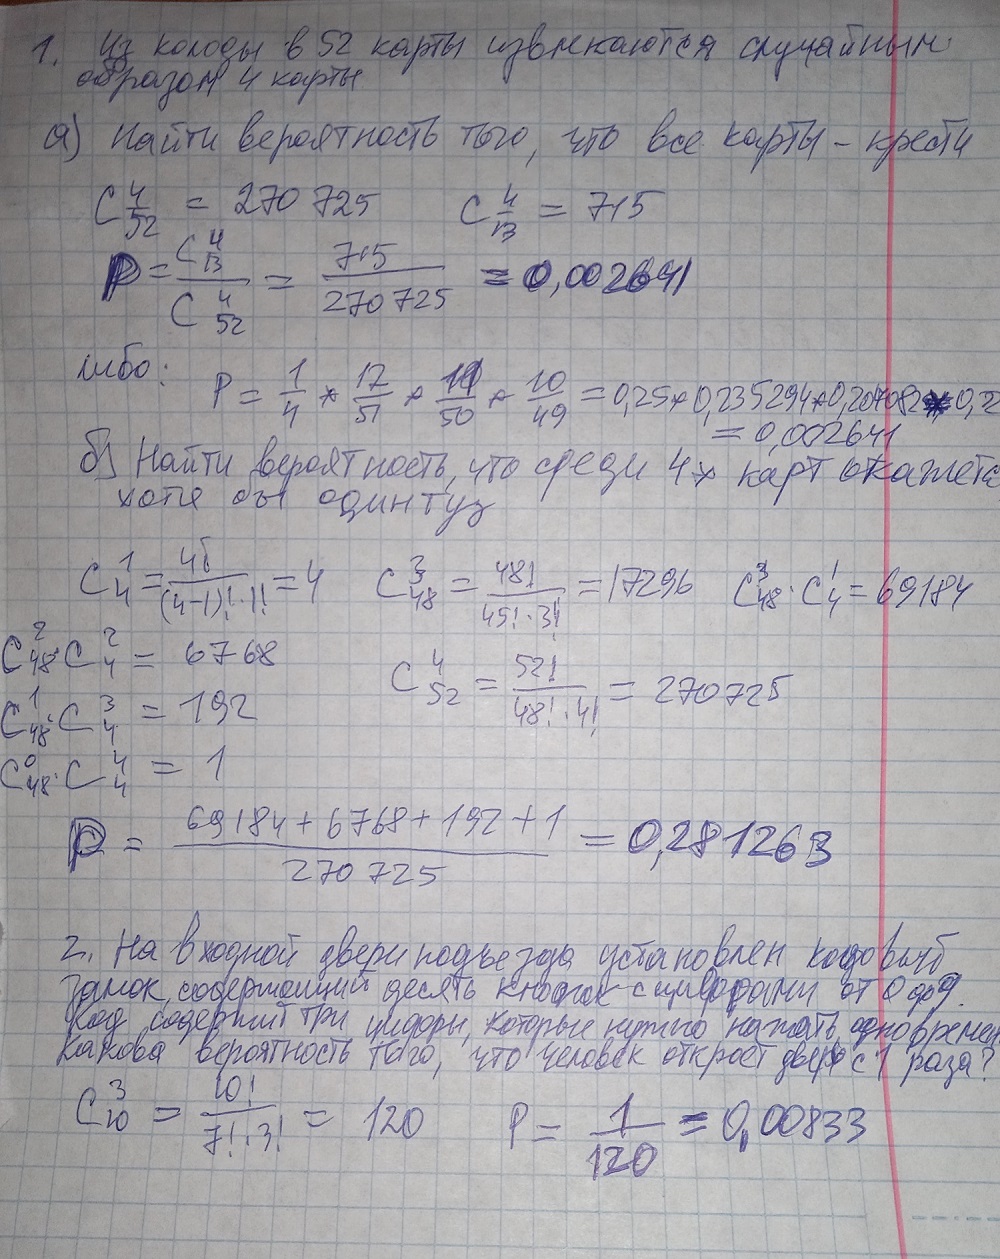 1. Из колоды в 52 карты извлекаются случайным
образом 4 карты
а) Найти вероятность того, что все карты – крести
C⁴₅₂ = 270 725 C⁴₁₃ = 715
P = C⁴₁₃ / C⁴₅₂ = 715 / 270 725 = 0,002641
либо:
P = 1/4 * 12/51 * 11/50 * 10/49 = 0,25*0,235294*0,2
= 0,002641
б) Найти вероятность, что среди 4х карт окажется
хотя бы один туз
C¹₄ = 4! / (4-1)!·1! = 4 C³₄₈ = 48! / 45!·3! = 17296 C³₄₈·C¹₄ = 69184
C²₄₈·C²₄ = 6768 C⁴₅₂ = 52! / 48!·4! = 270725
C¹₄₈·C³₄ = 192
C⁰₄₈·C⁴₄ = 1
P = 69184 + 6768 + 192 + 1 / 270 725 = 0,281263
2. На входной двери подъезда установлен кодовый
замок, содержащий десять кнопок с цифрами от 0 до 9.
Код содержит три цифры, которые нужно нажать одновремен
Какова вероятность того, что человек откроет дверь с 1 раза?
C³₁₀ = 10! / 7!·3! = 120 P = 1/120 = 0,00833